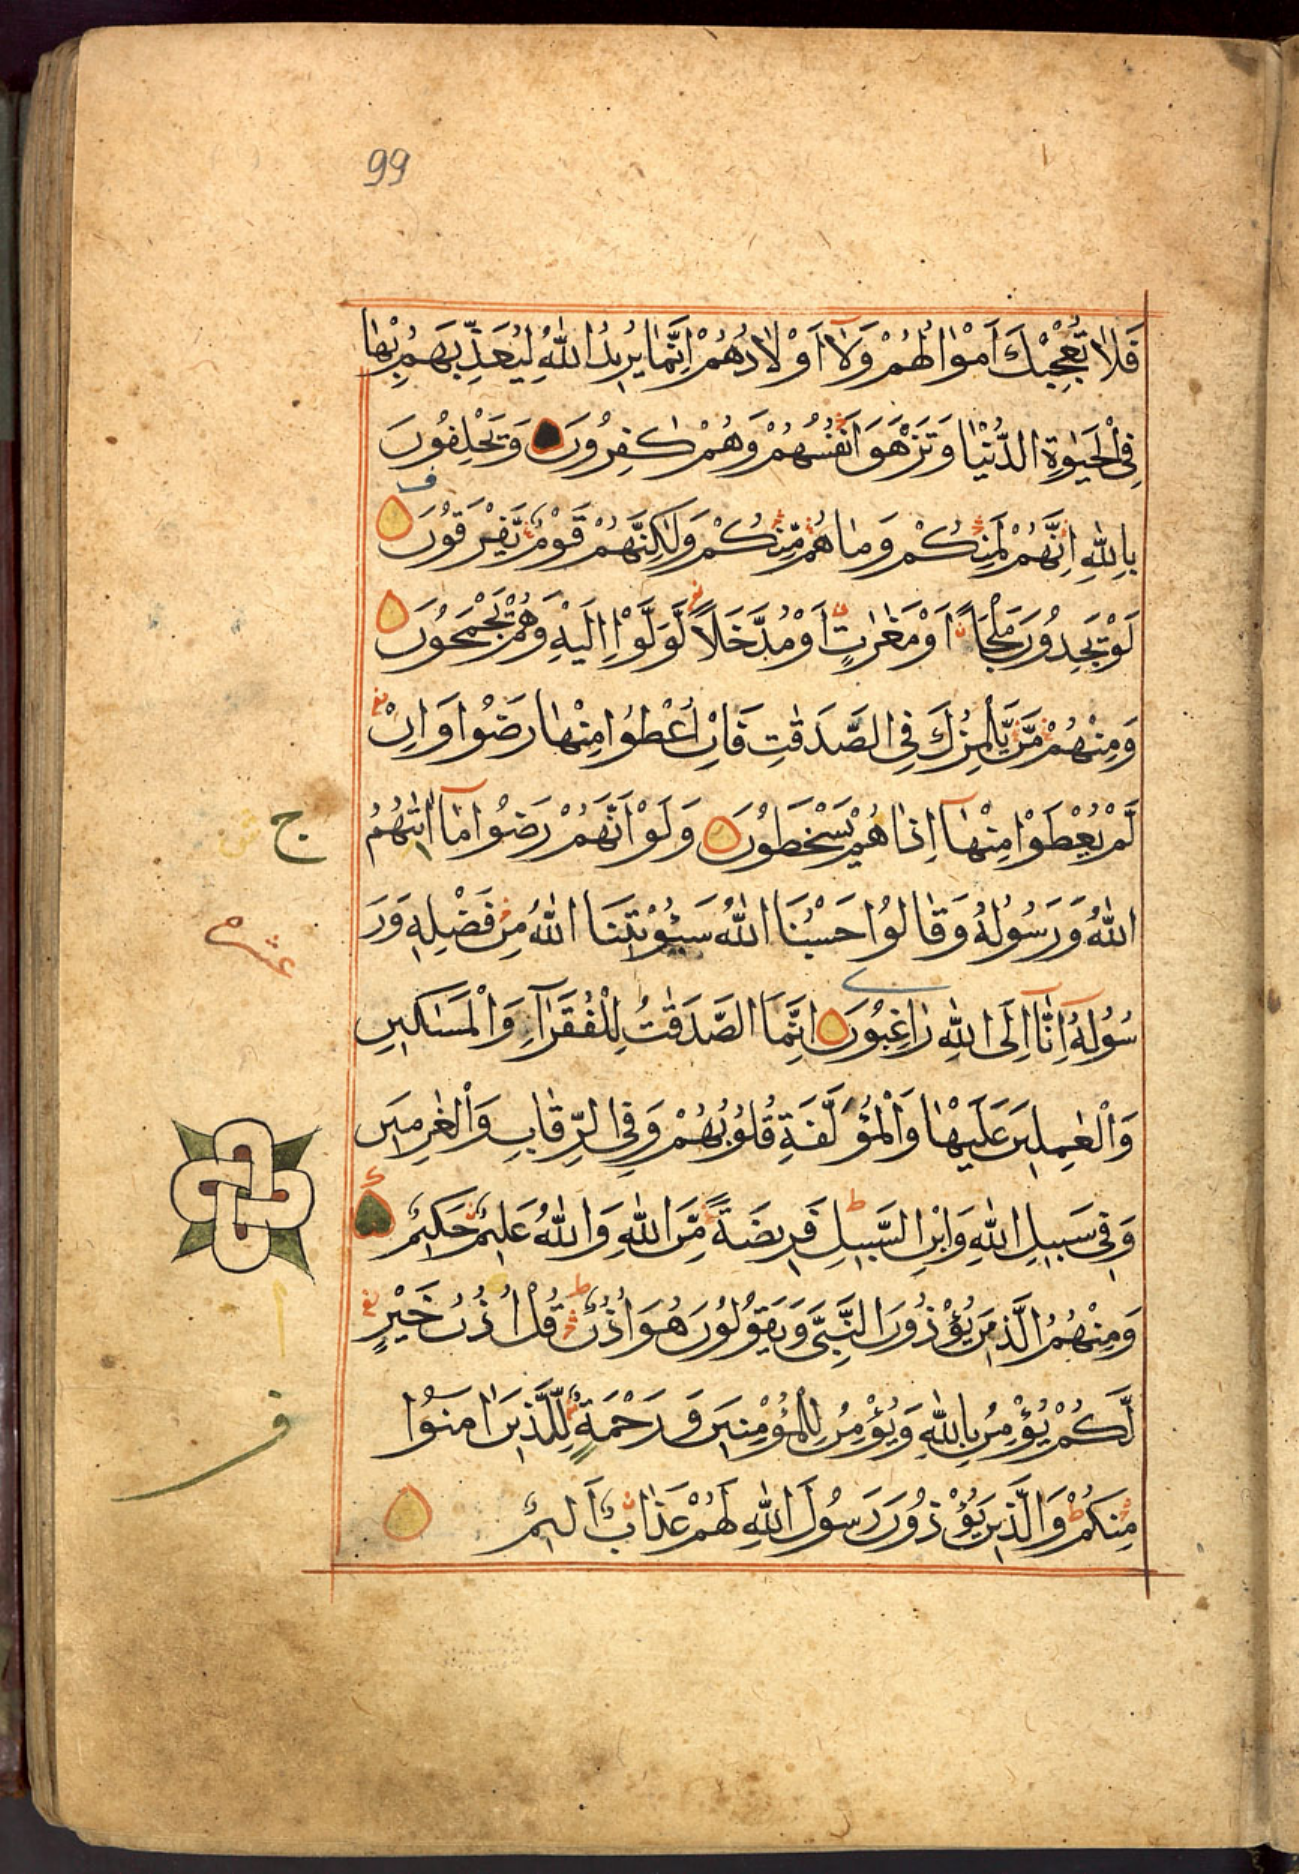 99
فَلَا تُعْجِبْكَ اَمْوَالُهُمْ وَلَٓا اَوْلَادُهُمْ اِنَّمَا يُرِيدُ اللّٰهُ لِيُعَذِّبَهُمْ بِهَا
فِى الْحَيٰوةِ الدُّنْيَا وَتَزْهَقَ اَنْفُسُهُمْ وَهُمْ كٰفِرُونَ وَيَحْلِفُونَ
بِاللّٰهِ اِنَّهُمْ لَمِنْكُمْ وَمَا هُمْ مِّنْكُمْ وَلٰكِنَّهُمْ قَوْمٌ يَّفْرَقُونَ
لَوْ يَجِدُونَ مَلْجَاً اَوْ مَغٰرٰتٍ اَوْ مُدَّخَلًا لَّوَلَّوْا اِلَيْهِ وَهُمْ يَجْمَحُونَ
وَمِنْهُمْ مَّنْ يَّلْمِزُكَ فِى الصَّدَقٰتِ فَاِنْ اُعْطُوا مِنْهَا رَضُوا وَاِنْ
لَّمْ يُعْطَوْا مِنْهَٓا اِذَا هُمْ يَسْخَطُونَ وَلَوْ اَنَّهُمْ رَضُوا مَٓا اٰتٰيهُمُ
ج
اللّٰهُ وَرَسُولُهُ وَقَالُوا حَسْبُنَا اللّٰهُ سَيُؤْتِينَا اللّٰهُ مِنْ فَضْلِهِ وَرَ
عشره
سُولُهُ اِنَّٓا اِلَى اللّٰهِ رَاغِبُونَ اِنَّمَا الصَّدَقٰتُ لِلْفُقَرَٓاءِ وَالْمَسٰكِينِ
وَالْعٰمِلِينَ عَلَيْهَا وَالْمُؤَلَّفَةِ قُلُوبُهُمْ وَفِى الرِّقَابِ وَالْغٰرِمِينَ
وَفِى سَبِيلِ اللّٰهِ وَابْنِ السَّبِيلِ فَرِيضَةً مِّنَ اللّٰهِ وَاللّٰهُ عَلِيمٌ حَكِيمٌ
وَمِنْهُمُ الَّذِينَ يُؤْذُونَ النَّبِىَّ وَيَقُولُونَ هُوَ اُذُنٌ قُلْ اُذُنُ خَيْرٍ
لَّكُمْ يُؤْمِنُ بِاللّٰهِ وَيُؤْمِنُ لِلْمُؤْمِنِينَ وَرَحْمَةٌ لِّلَّذِينَ اٰمَنُوا
ف
مِنْكُمْ وَالَّذِينَ يُؤْذُونَ رَسُولَ اللّٰهِ لَهُمْ عَذَابٌ اَلِيمٌ